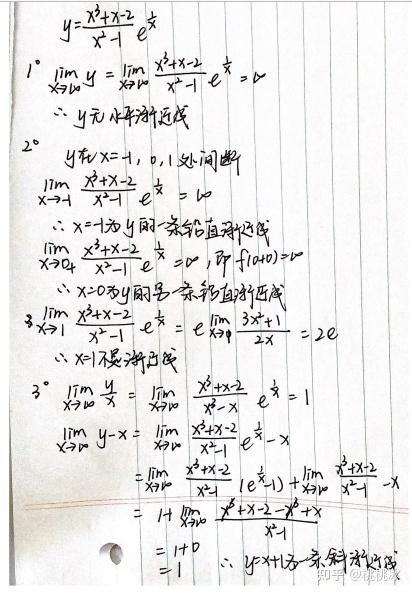 y=\frac{x^3+x-2}{x^2-1} e^{\frac{1}{x}}
1° \lim_{x→∞} y = \lim_{x→∞} \frac{x^3+x-2}{x^2-1} e^{\frac{1}{x}} = ∞
∴ y无水平渐近线
2° y在x=-1, 0, 1处间断
\lim_{x→-1} \frac{x^3+x-2}{x^2-1} e^{\frac{1}{x}} = ∞
∴ x=-1为y的一条铅直渐近线
\lim_{x→0+} \frac{x^3+x-2}{x^2-1} e^{\frac{1}{x}} = ∞, 即f(0+0)=∞
∴ x=0为y的另一条铅直渐近线
\lim_{x→1} \frac{x^3+x-2}{x^2-1} e^{\frac{1}{x}} = e \lim_{x→1} \frac{3x^2+1}{2x} = 2e
∴ x=1不是渐近线
3° \lim_{x→∞} \frac{y}{x} = \lim_{x→∞} \frac{x^3+x-2}{x^3-x} e^{\frac{1}{x}} = 1
\lim_{x→∞} y-x = \lim_{x→∞} \frac{x^3+x-2}{x^2-1} e^{\frac{1}{x}} -x
= \lim_{x→∞} \frac{x^3+x-2}{x^2-1} (e^{\frac{1}{x}}-1) + \lim_{x→∞} \frac{x^3+x-2}{x^2-1} -x
= 1+ \lim_{x→∞} \frac{x^3+x-2-x^3+x}{x^2-1}
= 1+0
= 1 ∴ y=x+1为一条斜渐近线
知乎 @桃桃冰